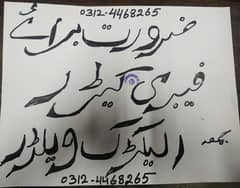 0312-4468265
ضرورت برائے
فیبریکیٹر
بمعہ
الیکٹرک ویلڈر
0312-4468265